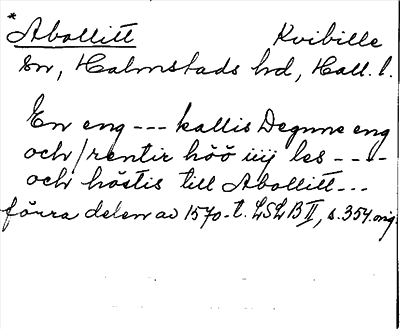 * Abollitt Kvibille
sn, Halmstads hd, Hall. l.
En eng --- kallis Degnne eng
och rentir höö iiij les ----
och höstis till Abollitt ---
förra delen av 1570-t. LSLB II, s. 354. orig.